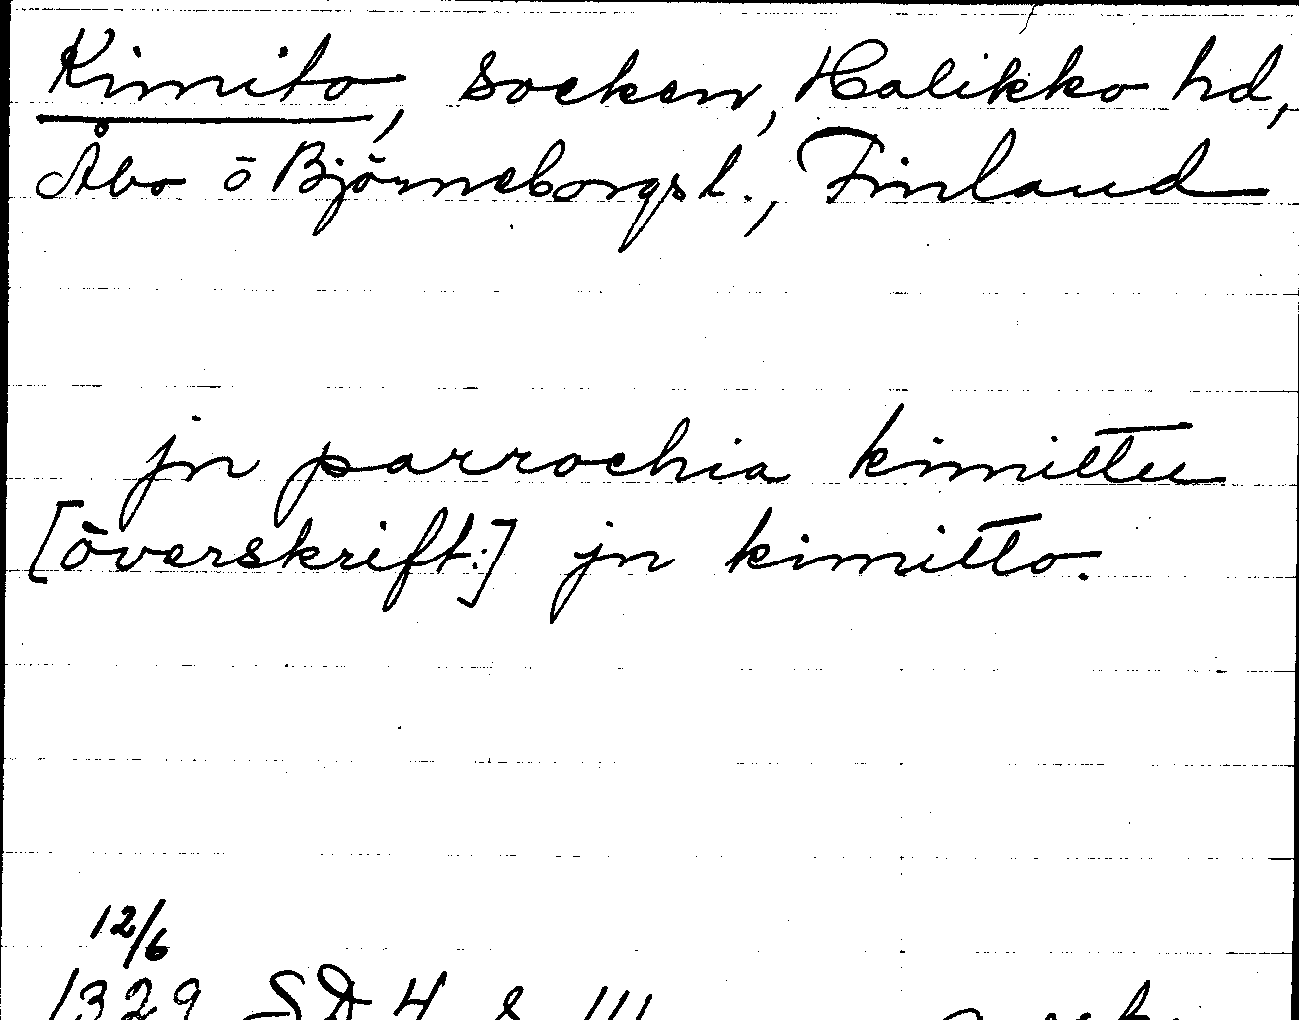 Kimito, socken, Halikko hd,
Åbo o Björneborgs l., Finland
jn parrochia kimittu
[överskrift:] jn kimitto.
12/6
1329 SD 4 s 111